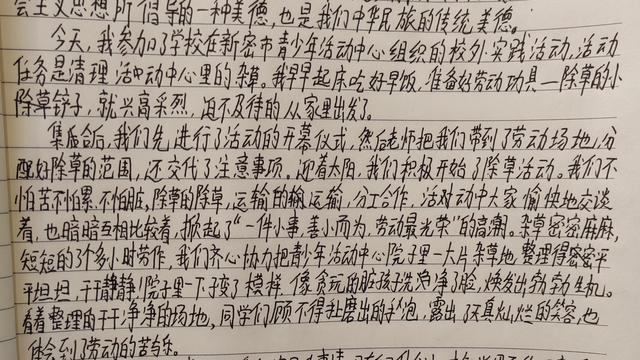 会主义思想所倡导的一种美德,也是我们中华民族的传统美德。
今天,我参加了学校在新密市青少年活动中心组织的校外实践活动,活动
任务是清理活动中心里的杂草。我早早起床吃好早饭,准备好劳动工具—除草的小
除草铲子,就兴高采烈,迫不及待的从家里出发了。
集合后,我们先进行了活动的开幕仪式,然后老师把我们带到了劳动场地,分
配好除草的范围,还交代了注意事项。迎着太阳,我们积极开始了除草活动。我们不
怕苦不怕累,不怕脏,除草的除草,运输的运输,分工合作,活动中大家愉快地交谈
着,也暗暗互相比较着,掀起了“一件小事,善小而为,劳动最光荣”的高潮。杂草密密麻麻,
短短的了个多小时劳作,我们齐心协力把青少年活动中心院子里一大片杂草地整理得密密平
平坦坦,干干静静!院子里一下子变了模样,像贪玩的脏孩子洗净了脸,焕发出勃勃生机。
看着整理的干干净净的场地,同学们顾不得手上磨出的泡,露出了天真灿烂的笑容,也
体会到了劳动的苦与乐。